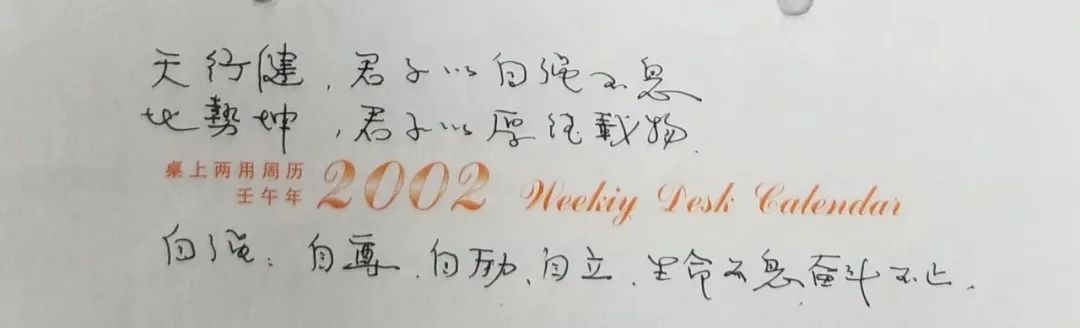 天行健,君子以自强不息
地勢坤,君子以厚德載物.
桌上两用周历
壬午年
2002 Weekiy Desk Calendar
自强.自尊.自励.自立.生命不息奋斗不止.